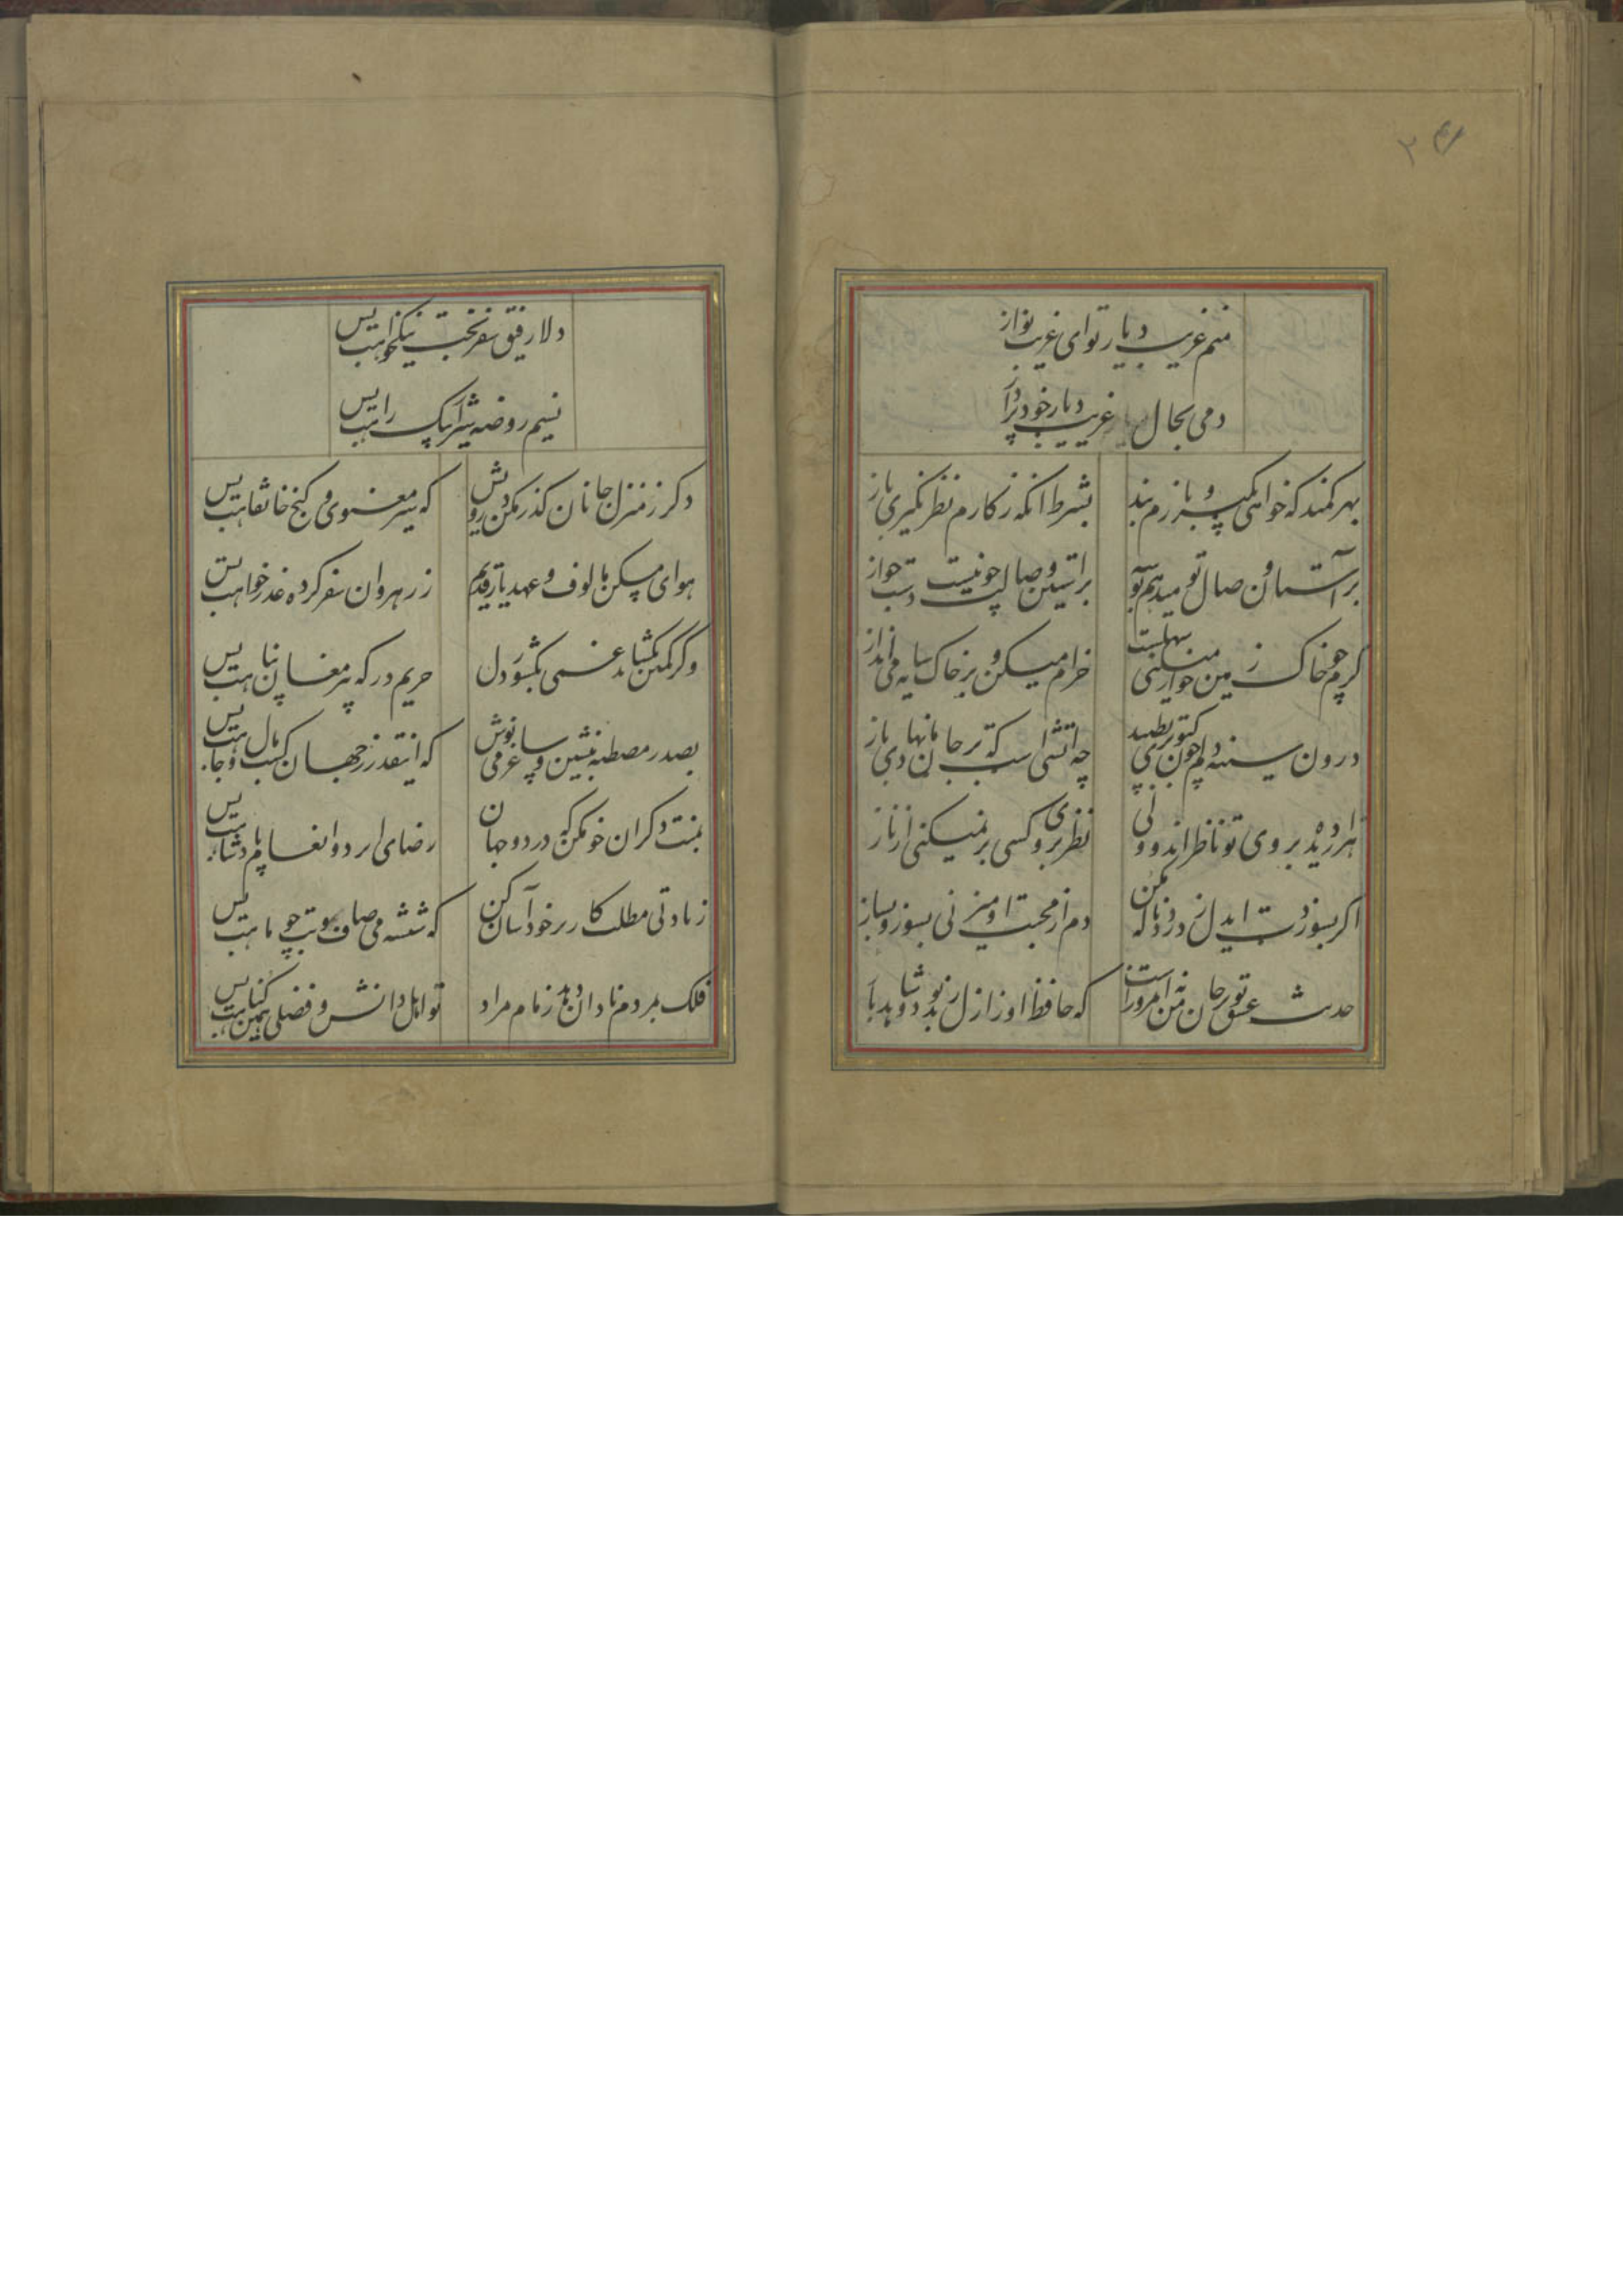 ۲۴
منم غریب دیار توای غریب نواز
دمی بحال غریب دیار خود پرداز
بهر کمند که خواهی بکیر و بازم بند بشرط انکه ز کارم نظر نکیری باز
بر آستان وصال تو میدهم بوسه
خرام میکن و بر خاک سایه می انداز
درون سینه دلم چون کبوتری بطپید چه اتشی است که بر جان ما نهادی باز
هزار دیده بروی تو ناظر اند و ولی نظر بروی کسی بر نمیکنی از ناز
اکر بسوزدت ایدل ز درد ناله مکن دم از محبت او میزنی بسوز و بساز
حدیث عشق تو بر جان من نه امروز است که حافظ او ز ازل
دلا رفیق سفر بخت نیکخواهت بس
نسیم روضه شیراز پیک راهت بس
دکر ز منزل جانان کذر مکن درویش که سیر معنوی و کنج خانقاهت بس
هوای مسکن مالوف و عهد یار قدیم ز رهروان سفر کرده عذر خواهت بس
وکر کمین بکشاید غمی بکشور دل حریم درکه پیر مغان پناهت بس
بصدر مصطبه بنشین و ساغر می نوش که اینقدر ز جهان کسب مال و جاهت بس
بمنت دکران خو مکن که در دو جهان رضای ایزد و انعام پادشاهت بس
زیادتی مطلب کار بر خود آسان کن که شیشه می صاف و بتی چو ماهت بس
فلک بمردم نادان دهد زمام مراد تو اهل دانش و فضلی همین کناهت بس